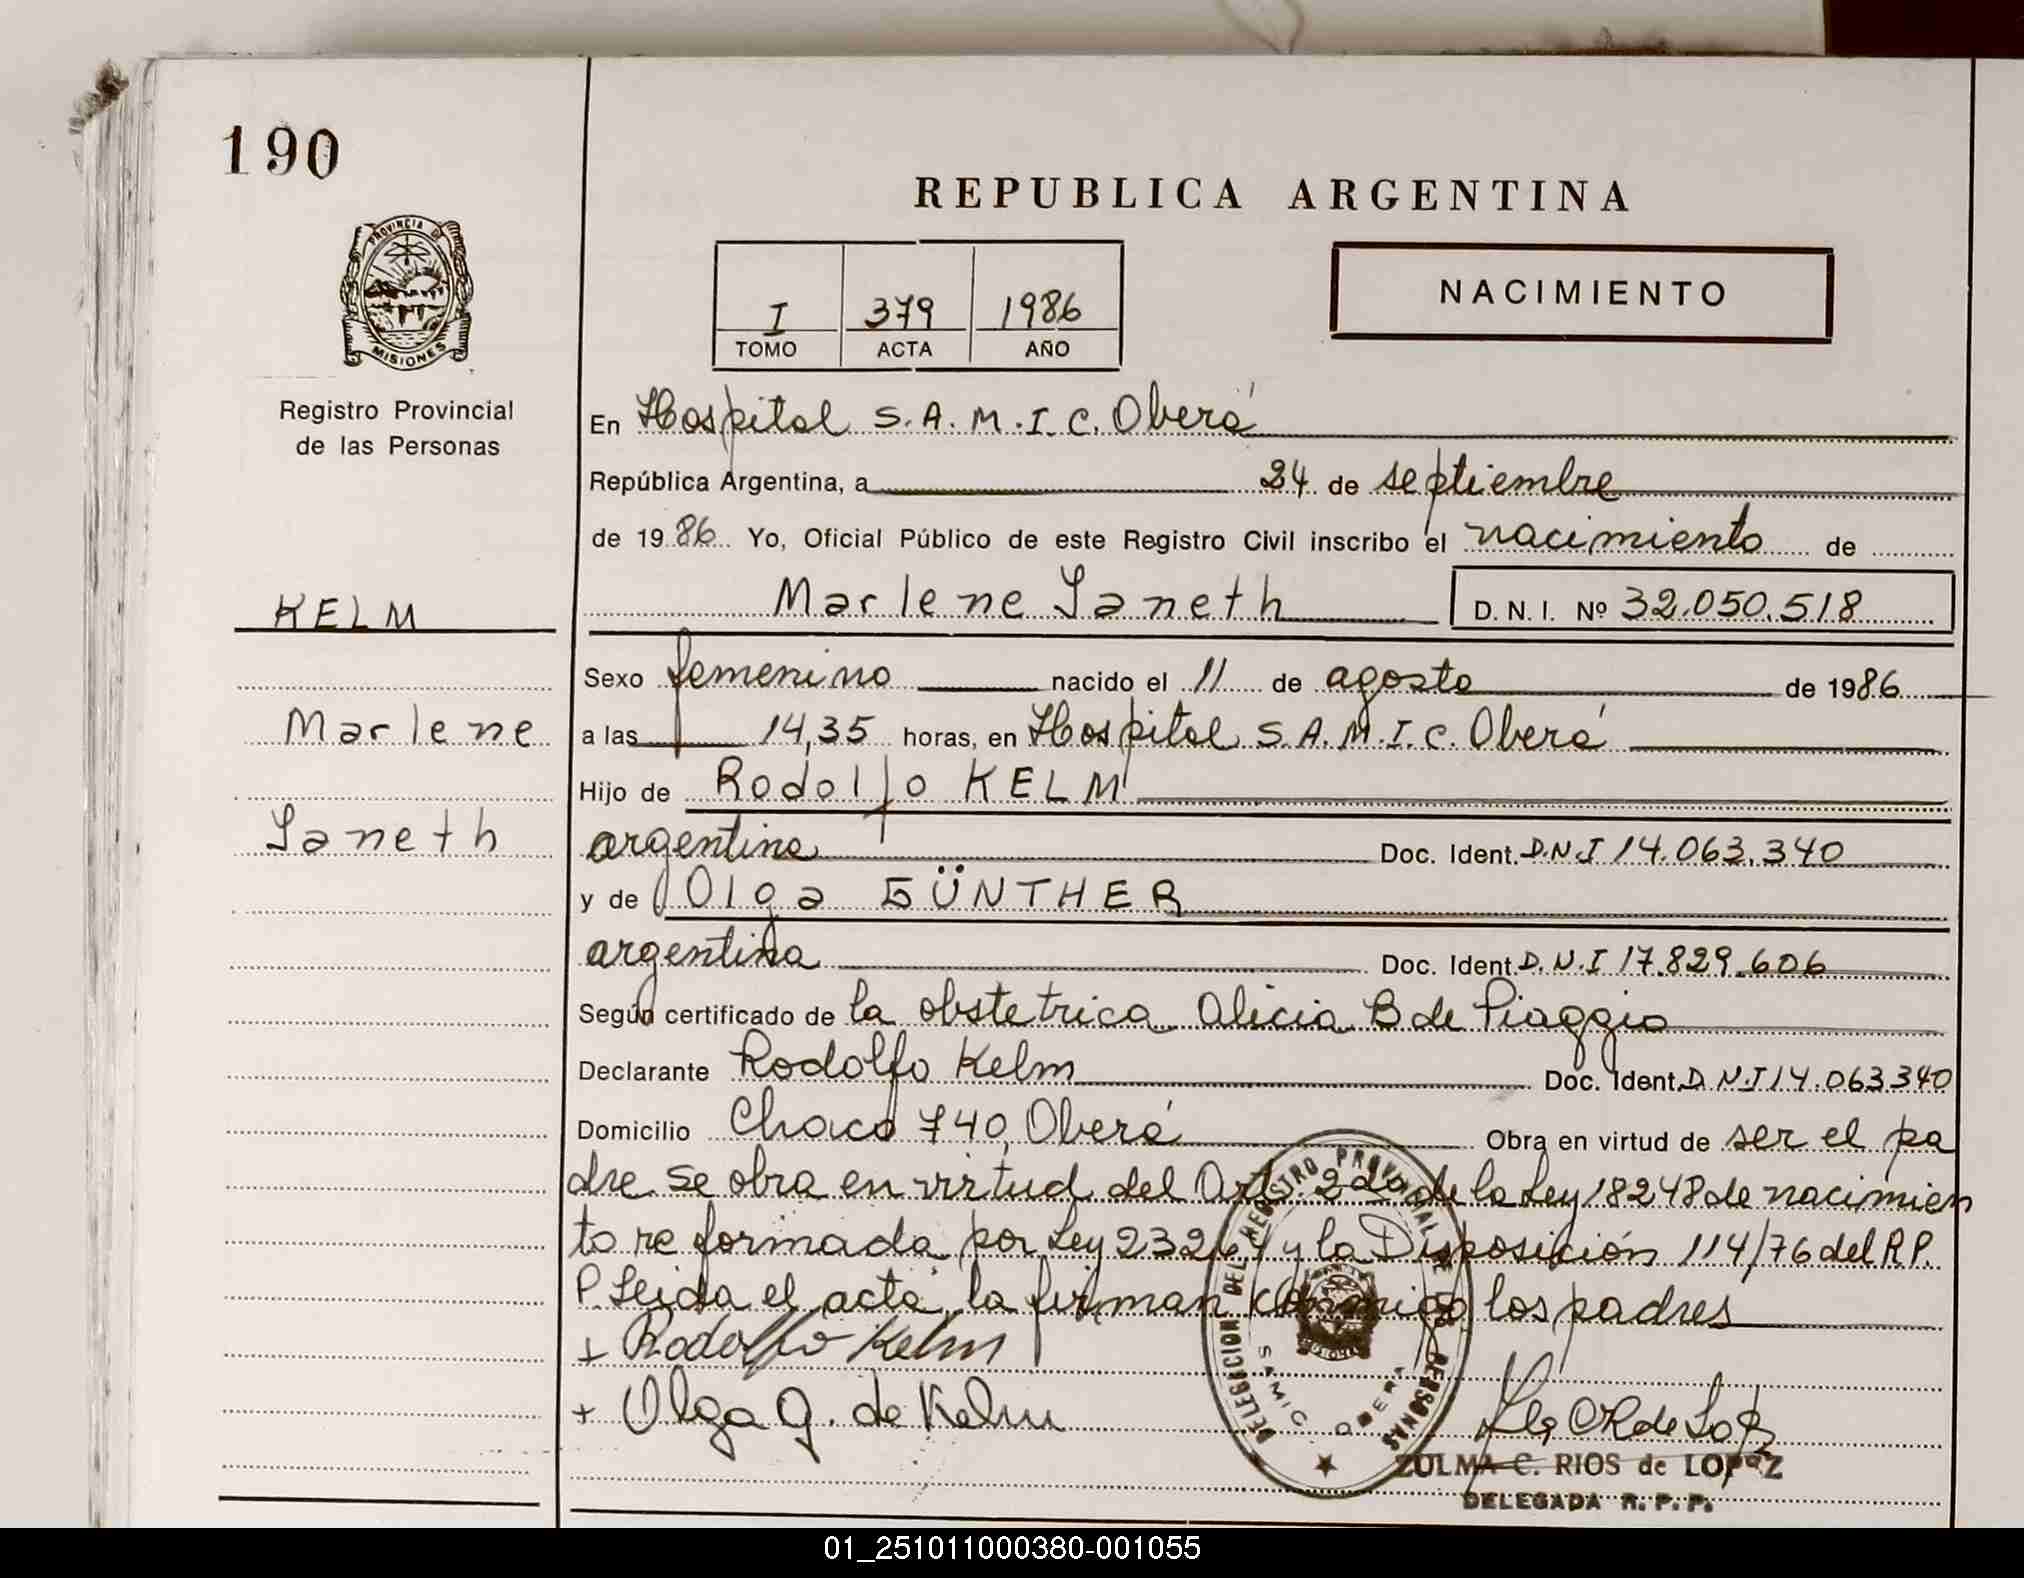 190
REPUBLICA ARGENTINA
PROVINCIA DE
MISIONES
I 379 1986
TOMO ACTA AÑO
NACIMIENTO
Registro Provincial
de las Personas
En Hospital S.A.M.I.C. Oberá
República Argentina, a 24 de septiembre
de 1986 Yo, Oficial Público de este Registro Civil inscribo el nacimiento de
KELM
Marlene Ianeth D.N.I. Nº 32.050.518
Sexo femenino nacido el 11 de agosto de 1986
Marlene
a las 14,35 horas, en Hospital S.A.M.I.C. Oberá
Hijo de Rodolfo KELM
Ianeth
argentina Doc. Ident. D.N.I 14.063.340
y de Olga GÜNTHER
argentina Doc. Ident. D.N.I 17.829.606
Según certificado de la obstetrica Alicia B de Piaggio
Declarante Rodolfo Kelm Doc. Ident. D.N.I 14.063.340
Domicilio Chaco 740, Oberá Obra en virtud de ser el pa
dre. Se obra en virtud del Art. 2do de la Ley 18248 de nacimien
to reformada por Ley 23264 y la Disposición 114/76 del R.P.
P. Leida el acta, la firman conmigo los padres
+ Rodolfo Kelm
+ Olga G. de Kelm
DELEGACION DEL REGISTRO PROVINCIAL DE LAS PERSONAS
SAMIC OBERA
ZULMA C. RIOS de LOPEZ
DELEGADA R.P.P.
01_251011000380-001055